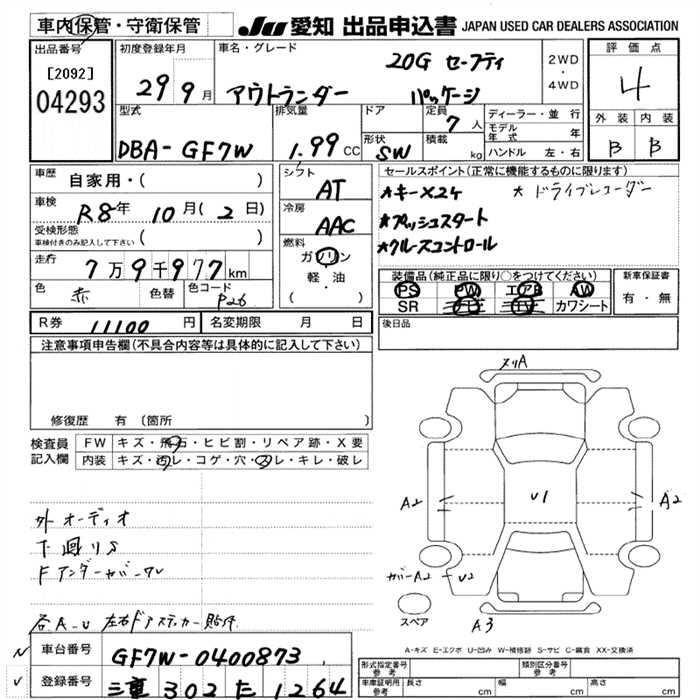 車内保管・守衛保管
JU 愛知 出品申込書 JAPAN USED CAR DEALERS ASSOCIATION
出品番号
[2092]
04293
初度登録年月
29年 9月
車名・グレード
アウトランダー
20G セーフティ
パッケージ
2WD
・
4WD
評価点
4
外装 内装
B B
型式
DBA-GF7W
排気量
1.99 CC
ドア
形状
SW
定員
7人
積載
kg
ディーラー・並行
モデル年式 年
ハンドル 左・右
車歴
自家用・( )
車検
R8年 10月(2日)
受検形態
車検付きのみ記入して下さい ( )
走行
7万9千977km
色
赤
色替
色コード
P26
シフト
AT
冷房
AAC
燃料
ガソリン
・
軽・油
( )
セールスポイント(正常に機能するものに限ります)
★キー×2ケ ★ドライブレコーダー
★プッシュスタート
★クルーズコントロール
装備品(純正品に限り○をつけてください)
PS PW エアB AW
SR ナビ TV カワシート
新車保証書
有・無
R券 11100円
名変期限 月 日
後日品
注意事項申告欄(不具合内容等は具体的に記入して下さい)
修復歴 有(箇所
検査員
記入欄
FW キズ・飛石・ヒビ割・リペア跡・X要
内装 キズ・汚レ・コゲ・穴・スレ・キレ・破レ
外オーディオ
下廻りS
Fアンダーカバーウレ
各A-U 左右ドアステッカー貼付
メリA
A2
U1
A2
カバーA2-U2
スペア
A3
A-キズ E-エクボ U-凹み W-補修跡 S-サビ C-腐食 XX-交換済
車台番号
GF7W-0400873
登録番号
三重 302 た 1264
型式指定番号
参考
類別区分番号
参考
車庫証明用
参考
長さ cm 幅 cm 高さ cm